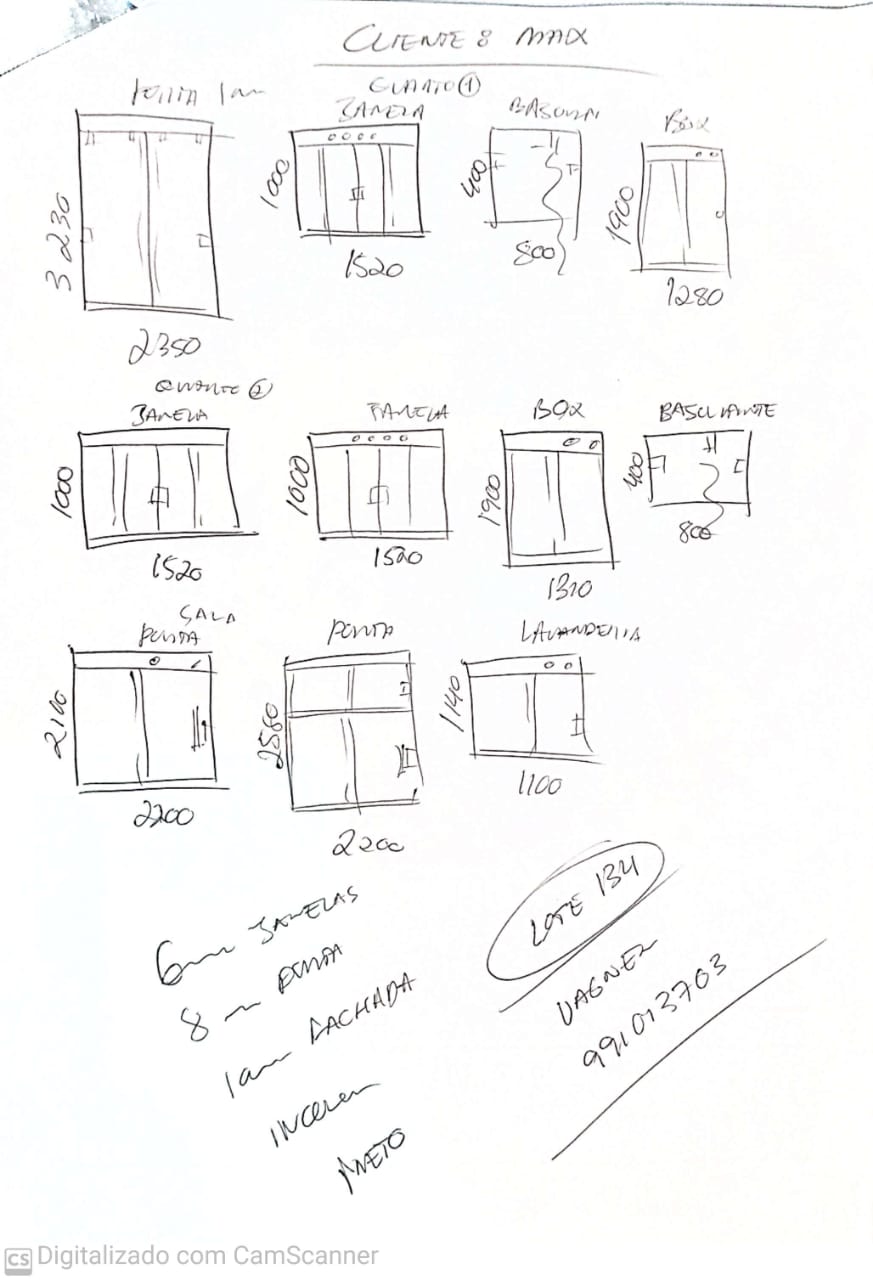 CLIENTE 8 MAX
PORTA 10mm
QUARTO ①
JANELA
BASCULAN
BOX
3 230
1000
400
1900
2350
1520
800
1280
QUARTO ②
JANELA
JANELA
BOX
BASCULANTE
1000
1000
1900
400
1520
1520
1310
800
SALA
PORTA
PORTA
LAVANDERIA
2100
2580
1140
2200
2200
1100
6mm JANELAS
8mm PORTA
10mm FACHADA
INCOLOR
PRETO
LOTE 134
VAGNER
991013703
CS Digitalizado com CamScanner